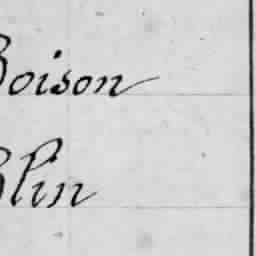 Boison
Blin